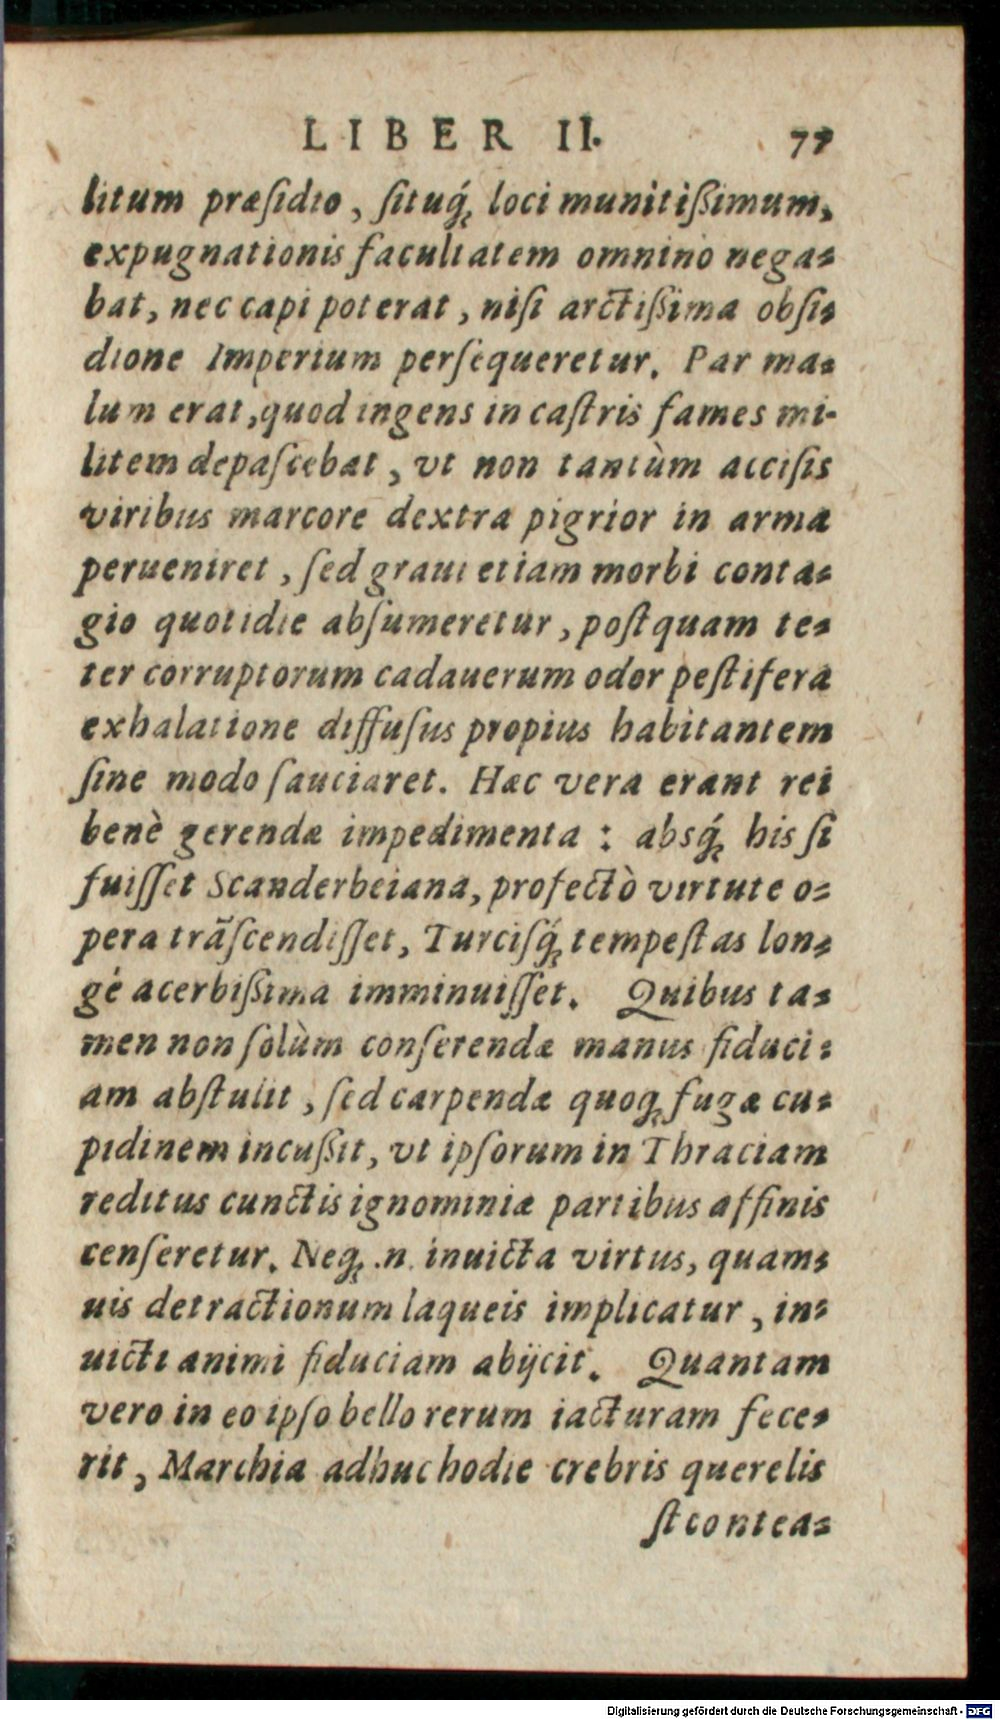 LIBER II. 77
litum præſidio, ſituq́; loci munitißimum,
expugnationis facultatem omnino nega-
bat, nec capi poterat, niſi arctißima obſi-
dione Imperium perſequeretur. Par ma-
lum erat, quod ingens in caſtris fames mi-
litem depaſcebat, vt non tantùm acciſis
viribus marcore dextra pigrior in arma
perueniret, ſed graui etiam morbi conta-
gio quotidie abſumeretur, poſtquam te-
ter corruptorum cadauerum odor peſtifera
exhalatione diffuſus propius habitantem
ſine modo ſauciaret. Hæc vera erant rei
benè gerendæ impedimenta : absq́; his ſi
fuiſſet Scanderbeiana, profectò virtute o-
pera trãſcendiſſet, Turciſq́; tempeſtas lon-
gè acerbißima imminuiſſet. Quibus ta-
men non ſolùm conſerendæ manus fiduci-
am abſtulit, ſed carpendæ quoq; fugæ cu-
pidinem incußit, vt ipſorum in Thraciam
reditus cunctis ignominiæ partibus affinis
cenſeretur. Neq; .n. inuicta virtus, quam-
uis detractionum laqueis implicatur, in-
uicti animi fiduciam abijcit. Quantam
vero in eo ipſo bello rerum iacturam fece-
rit, Marchia adhuc hodie crebris querelis
ſtcontea-
Digitalisierung gefördert durch die Deutsche Forschungsgemeinschaft - DFG